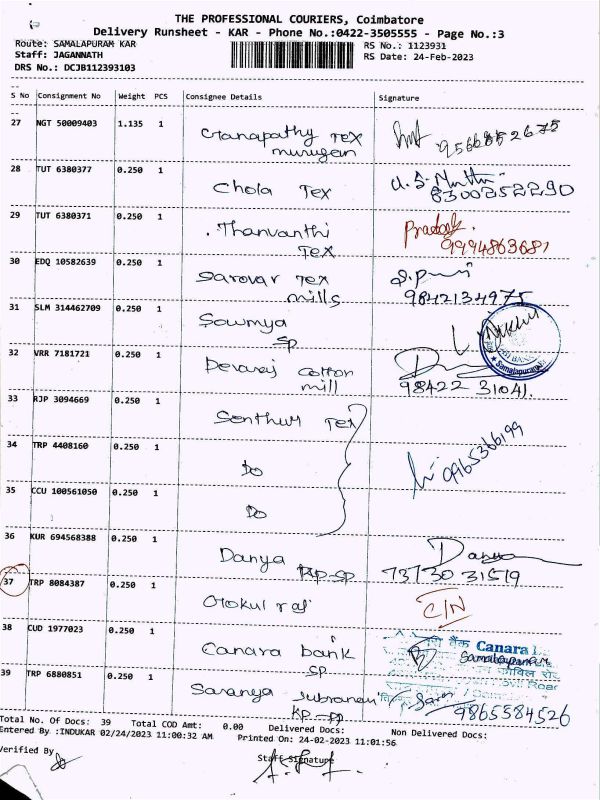 THE PROFESSIONAL COURIERS, Coimbatore
Delivery Runsheet - KAR - Phone No.:0422-3505555 - Page No.:3
Route: SAMALAPURAM KAR
RS No.: 1123931
Staff: JAGANNATH
RS Date: 24-Feb-2023
DRS No.: DCJB112393103
S No Consignment No Weight PCS Consignee Details Signature
27 NGT 50009403 1.135 1 Ganapathy Tex
murugan
9566852675
28 TUT 6380377 0.250 1 Chola Tex
8300252290
29 TUT 6380371 0.250 1 Thanvanthi
Tex
9994863681
30 EDQ 10582639 0.250 1 Sarovar Tex
mills
9842134975
31 SLM 314462709 0.250 1 Sowmya
SP
Samalapuram
32 VRR 7181721 0.250 1 Devaraj cotton
mill
98422 31041.
33 RJP 3094669 0.250 1 Senthur Tex
34 TRP 4408160 0.250 1 Do
0965366199
35 CCU 100561050 0.250 1 Do
36 KUR 694568388 0.250 1 Danya
SP
73730 31519
37 TRP 8084387 0.250 1 Gokul raj C/N
38 CUD 1977023 0.250 1 Canara bank
SP
Canara
Samalapuram
39 TRP 6880851 0.250 1 Saranya Subramani
KP-SP
9865584526
Total No. Of Docs: 39 Total COD Amt: 0.00 Delivered Docs: Non Delivered Docs:
Entered By :INDUKAR 02/24/2023 11:00:32 AM Printed On: 24-02-2023 11:01:56
Verified By
Staff Signature